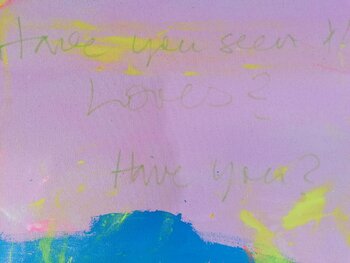 Have you seen
Loves?
Have you?